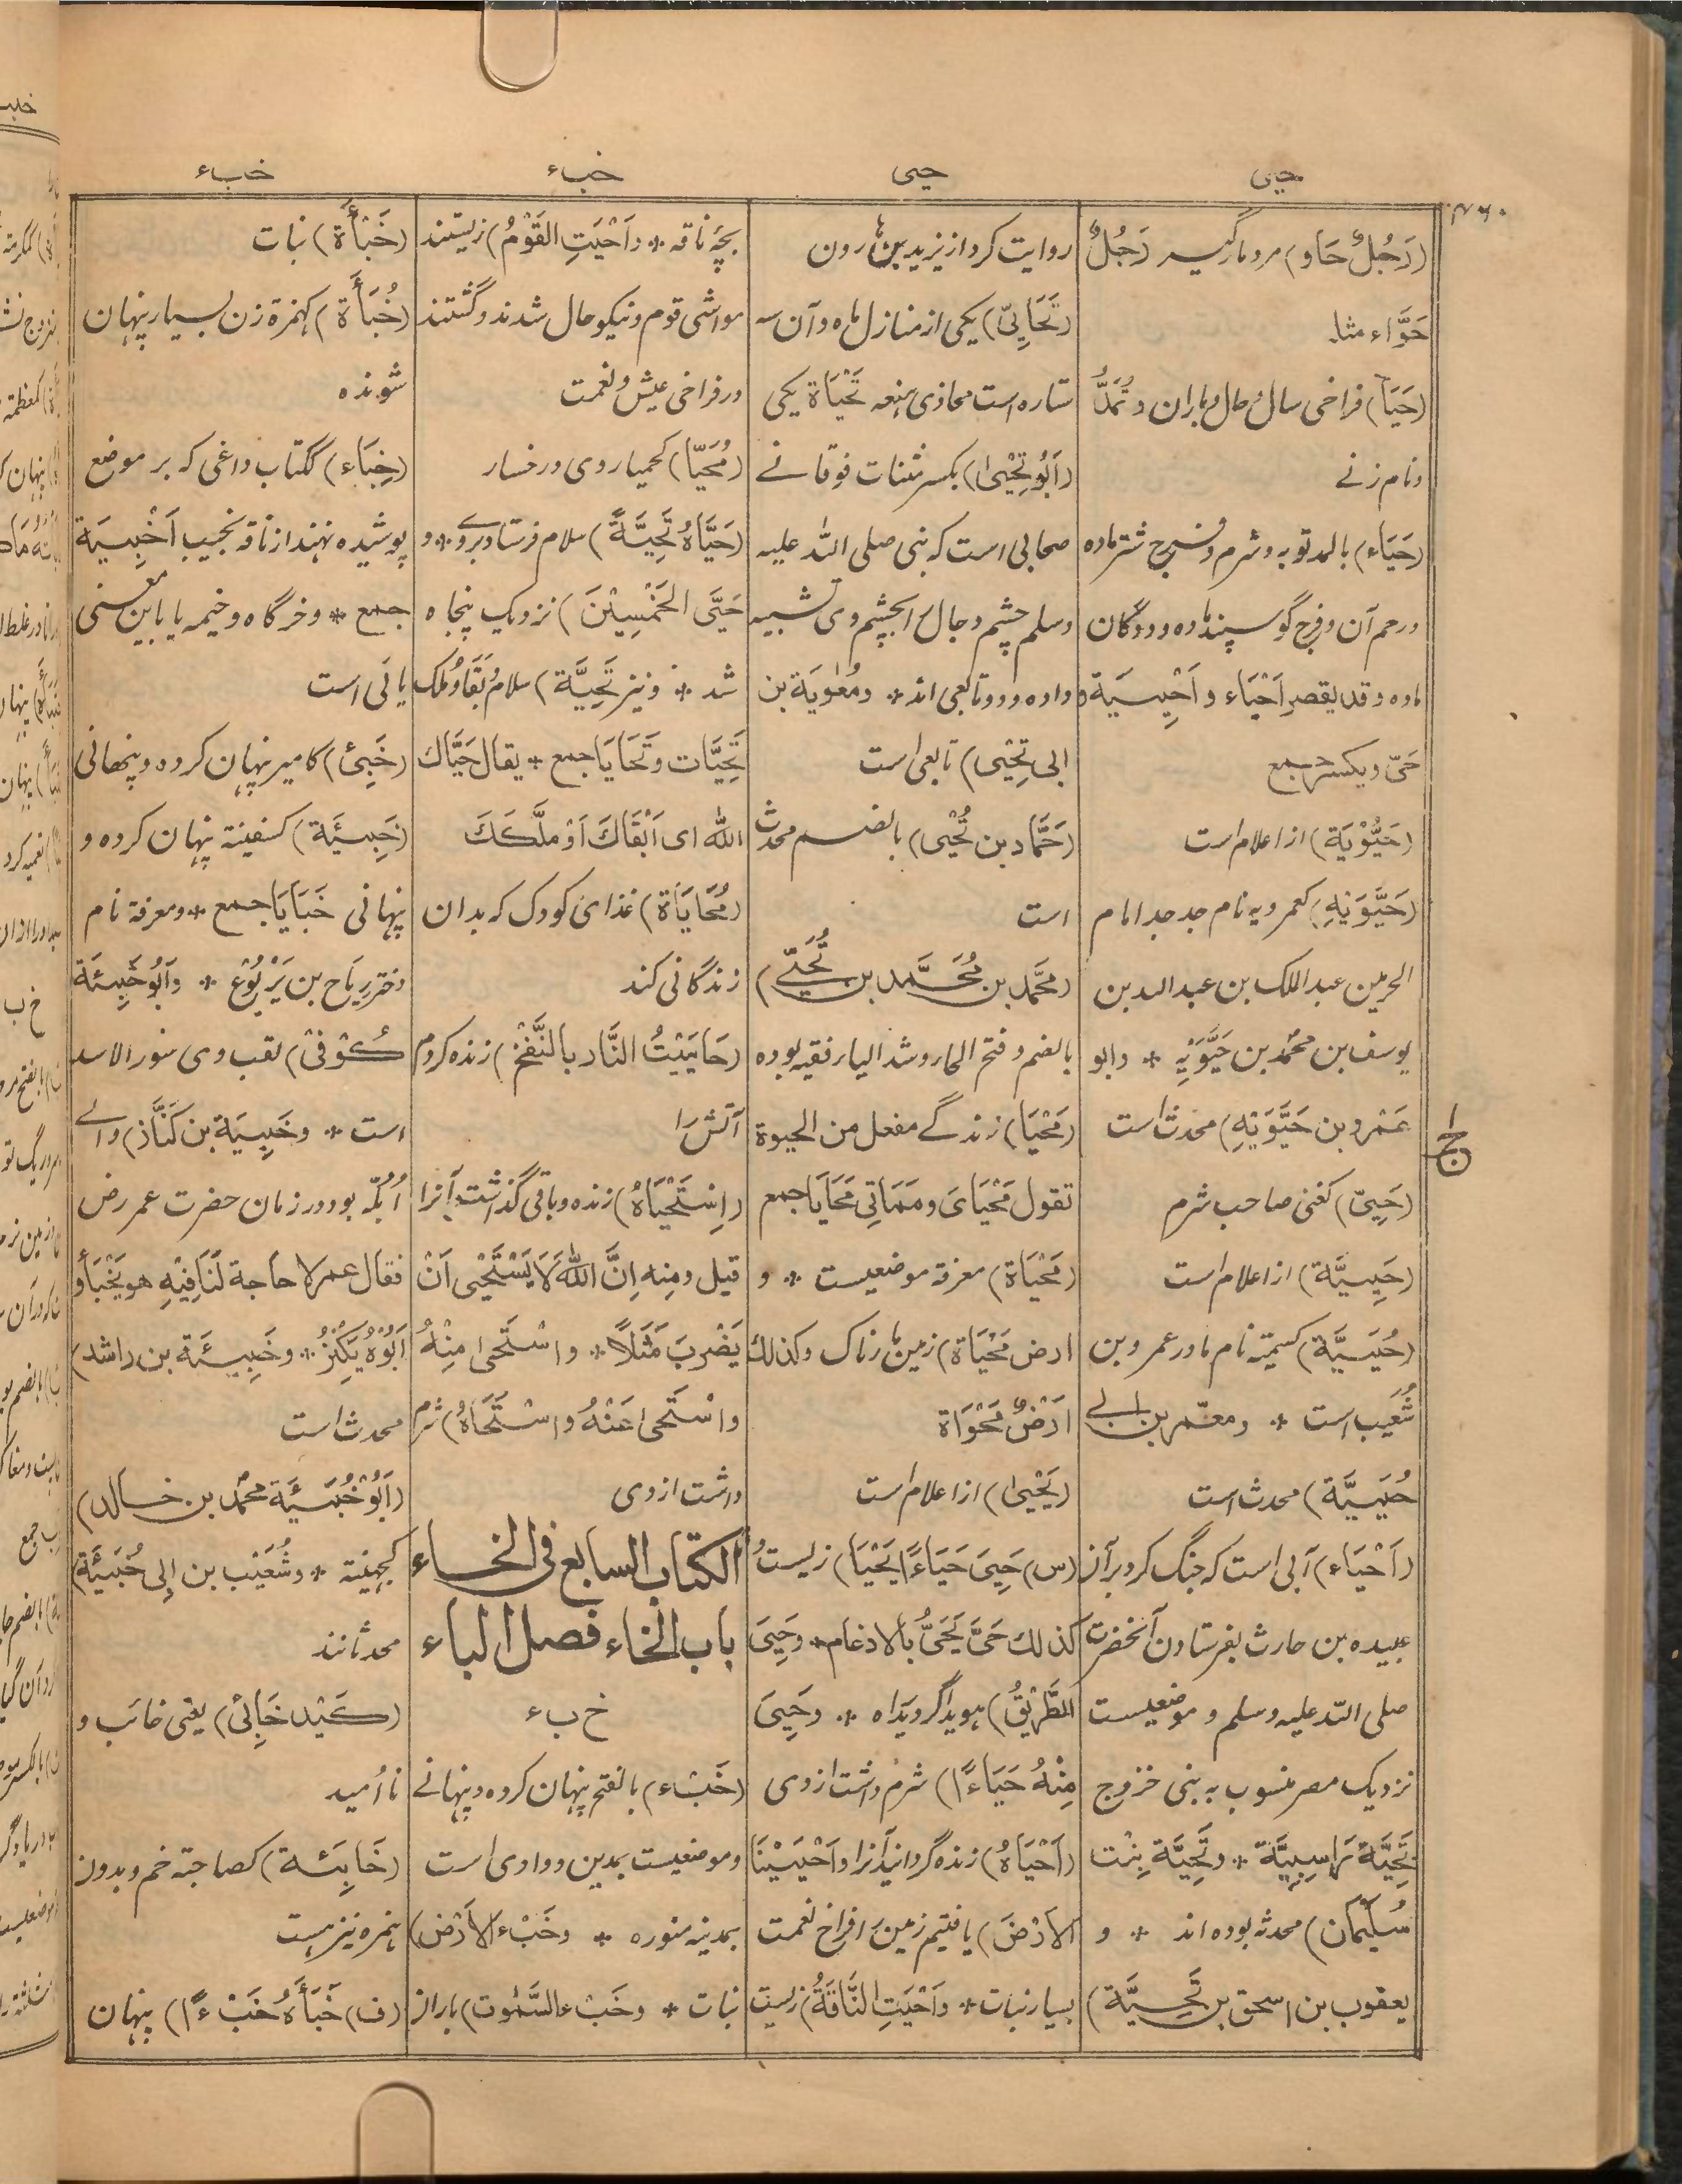 حیی
حیی
خبء
خبء
(رَجُلٌ حَاو) مرد مارگیر (رَجُلٌ
حَوَّاء مثله
(حَیَا) فراخی سال و حال و باران و یُمَدُّ
و نام زنے
(حَیَاء) بالمد توبه و شرم و فرج شتر ماده
و رحم آن و فرج گوسپند ماده و ددگان
ماده و قد یقصر اَحْیَاء و اَحْیِیَة و
حَیّ و یکسر جمع
(حَیُّوْیَة) از اعلام است
(حَیَّوَیْهِ) کعمرویه نام جد جد امام
الحرمین عبد الملک بن عبد الله بن
یوسف بن محمّد بن حَیَّوَیْهِ * و ابو
عَمْرو بن حَیَّوَیْهِ) محدث است
(حَیِیّ) کغنی صاحب شرم
(حَیِیَّة) از اعلام است
(حُیَیَّة) کسمیّة نام مادر عمرو بن
شُعَیب است * و معمّر بن ابی
حُیَیَّة) محدث است
(اَحْیَاء) آبی است که جنگ کرد بر آن
عبیده بن حارث بفرستادن آنحضرت
صلی الله علیه وسلم و موضعیست
نزدیک مصر منسوب به بنی خزرج
تَحِیَّة رَاسِبِیَّة * و تَحِیَّة بِنْت
سُلَیْمَان) محدثه بوده اند * و
یعقوب بن اسحق بن تَحِیَّة)
روایت کرد از یزید بن هارون
(تَحَایِیّ) یکی از منازل ماه و آن سه
ستاره است محاذی هنعه تَحْیَاة یکی
(اَبُو تِحْیٰی) بکسر مثنات فوقانے
صحابی است که نبی صلی الله علیه
وسلم چشم دجال را بچشم وی تشبیه
داده و دو تابعی اند * و مُعٰوِیَة بن
ابی تِحْیٰی) تابعی است
(حَمَّاد بن تُحْیٰی) بالضم محدث
است
(محَمَّد بن مُحَمَّد بن تُحَیّے)
بالضم و فتح الحاء و شد الیاء فقیه بوده
(مَحْیَا) زندگے مفعل من الحیوة
تقول مَحْیَایَ و مَمَاتِی مَحَایَا جمع
(مَحْیَاة) معرفة موضعیست * و
ارض مَحْیَاة) زمین مارناک و کذلک
اَرْضٌ مَحْوَاة
(یَحْیٰی) از اعلام است
(س) حَیِیَ حَیَاءً ا یَحْیَا) زیست و
کذلک حَیَّ یَحَیُّ بالادغام * و حَیِیَ
الطَّرِیْقُ) هویدا گردید راه * و حَیِیَ
مِنْهُ حَیَاءً ا) شرم داشت از وی
(اَحْیَاهُ) زنده گردانید آنرا و اَحْیَیْنَا
الاَرْضَ) یافتیم زمین را فراخ نعمت
بسیار نبات * و اَحْیَتِ النَّاقَةُ) زیست
بچهٔ ناقه * و اَحْیَتِ القَوْمُ) زیستند
مواشی قوم و نیکو حال شدند و گشتند
در فراخی عیش و نعمت
(مُحَیّا) کحمیا روی و رخسار
(حَیَّاهُ تَحِیَّةً) سلام فرستاد بر وے * و
حَیَّی الخَمْسِیْنَ) نزدیک پنجاه
شد * و نیز تَحِیَّة) سلام و بَقَا و مُلک
تَحِیَّات و تَحَایَا جمع * یقال حَیَّاكَ
الله ای اَبْقَاكَ اَوْ مَلَّكَكَ
(مُحَایَاة) غذای کودک که بدان
زندگانی کند
(حَایَیْتُ النَّار بالنَّفْخِ) زنده کردم
آتش را
(اِسْتَحْیَاهُ) زنده و باقی گذاشت آنرا
قیل و منه اِنَّ اللّٰهَ لَا یَسْتَحْیِی اَنْ
یَضْرِبَ مَثَلًا * و اسْتَحٰی مِنْهُ
و اسْتَحٰی عَنْهُ و اسْتَحَاهُ) شرم
داشت از وی
الکتاب السابع فی الخاء
باب الخاء فصل الباء
خ ب ء
(خَبْء) بالفتح پنهان کرده و پنهانے
و موضعیست بمدین و وادی است
بمدینه منوره * و خَبْء الاَرْض)
نبات * و خَبْء السَّمٰوت) باران
(خَبْأَة) نبات
(خُبَأَة) کهمزة زن بسیار پنهان
شونده
(خِبَاء) ککتاب داغی که بر موضع
پوشیده نهند از ناقه نجیب اَخْبِیَة
جمع * و خرگاه و خیمه یا باین معنی
یائی است
(خَبِیْ) کامیر پنهان کرده و پنهانی
(خَبِیْئَة) کسفینة پنهان کرده و
پنهانی خَبَایَا جمع * و معرفة نام
دختر رِیَاح بن یَرْبُوْع * و اَبُو خَبِیْئَة
کُوْفِیْ) لقب وی سور الاسد
است * و خَبِیْئَة بن کَنَّاز) والے
اُبُلّه بود در زمان حضرت عمر رض
فقال عمر لا حاجة لَنَا فِیْهِ هو یَخْبَأُ و
اَبُوْهُ یَکْنِزُ * و خَبِیْئَة بن راشد)
محدث است
(اَبُو خُبَیْئَة محمّد بن خالد)
کجهینة * و شُعَیْب بن ابی خُبَیْئَة)
محدثانند
(کَیْد خَابِئ) یعنی خائب و
نا اُمید
(خَابِئَة) کصاحبة خم و بدون
همزه نیز هست
(ف) خَبَأَهُ خَبْءً ا) پنهان